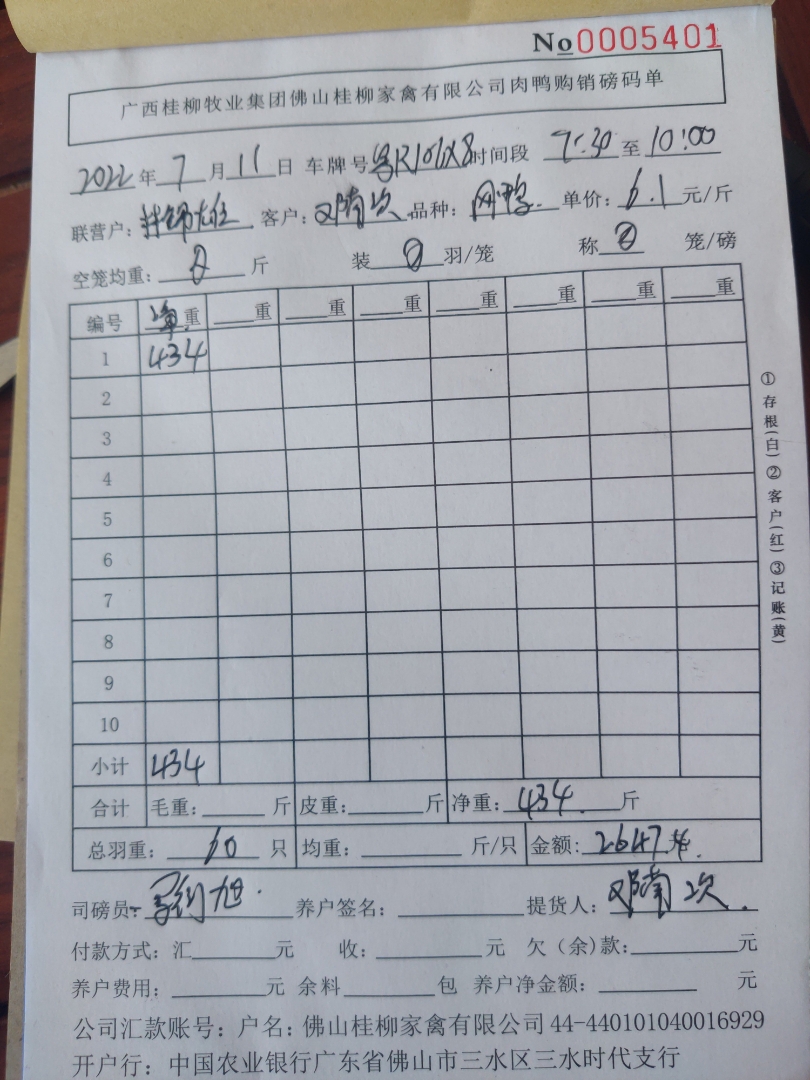 No 0005401
广西桂柳牧业集团佛山桂柳家禽有限公司肉鸭购销磅码单
2022年7月11日 车牌号粤R106X8时间段 7:30至10:00
联营户: 客户:邓南次 品种: 单价:6.1元/斤
空笼均重:0斤 装0羽/笼 称0笼/磅
编号 净重 重 重 重 重 重 重 重
1 434
2
3
4
5
6
7
8
9
10
小计 434
合计 毛重: 斤 皮重: 斤 净重:434斤
总羽重:60只 均重: 斤/只 金额:2647
司磅员: 养户签名: 提货人:邓南次
付款方式:汇 元 收: 元 欠(余)款: 元
养户费用: 元 余料 包 养户净金额: 元
公司汇款账号:户名:佛山桂柳家禽有限公司44-440101040016929
开户行:中国农业银行广东省佛山市三水区三水时代支行
①存根(白)②客户(红)③记账(黄)